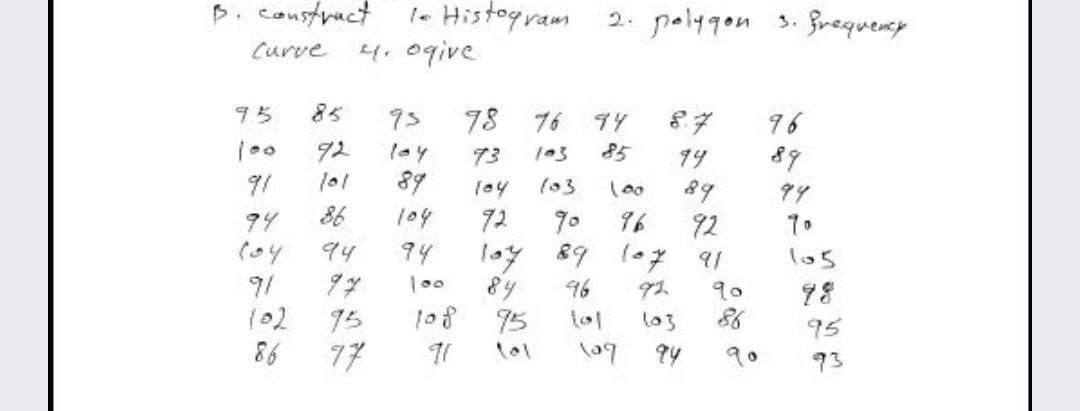 B. construct 1. Histogram 2. polygon 3. frequency
curve 4. ogive
95 85 93 98 96 94 87 96
100 92 104 93 103 85 94 89
91 101 89 104 103 100 89 94
94 86 104 92 90 96 92 90
104 94 94 107 89 107 91 105
91 97 100 84 96 92 90 98
102 95 108 95 101 103 86 95
86 97 91 101 109 94 90 93